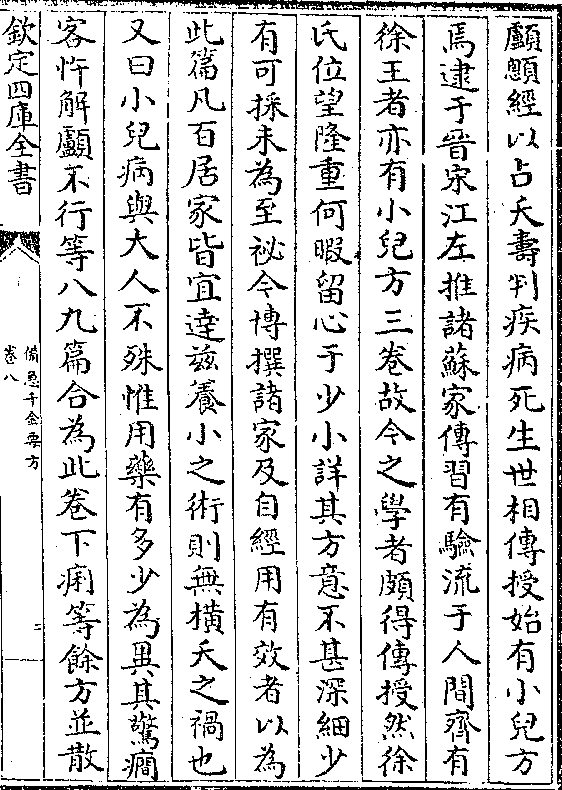 顱顖經以占夭壽判疾病死生世相傳授始有小兒方
焉逮于晉宋江左推諸蘇家傳習有驗流于人間齊有
徐王者亦有小兒方三卷故今之學者頗得傳授然徐
氏位望隆重何暇留心于少小詳其方意不甚深細少
有可採未為至祕今博撰諸家及自經用有效者以為
此篇凡百居家皆宜達兹養小之術則無橫夭之禍也
又曰小兒病與大人不殊惟用藥有多少為異其驚癇
客忤解顱不行等八九篇合為此卷下痢等餘方並散
欽定四庫全書
備急千金要方
卷八
二